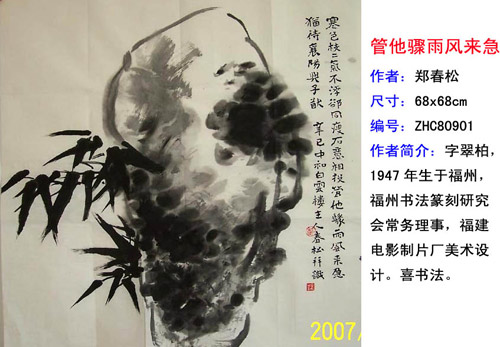 寒色枝二氣不浮卻向瘦石意相投管他驟雨風來急
猶待襄陽與子猷
辛巳中和白雲樓主人春松并識
管他骤雨风来急
作者：郑春松
尺寸：68x68cm
编号：ZHC80901
作者简介：字翠柏，
1947年生于福州，
福州书法篆刻研究
会常务理事，福建
电影制片厂美术设
计。喜书法。
2007/